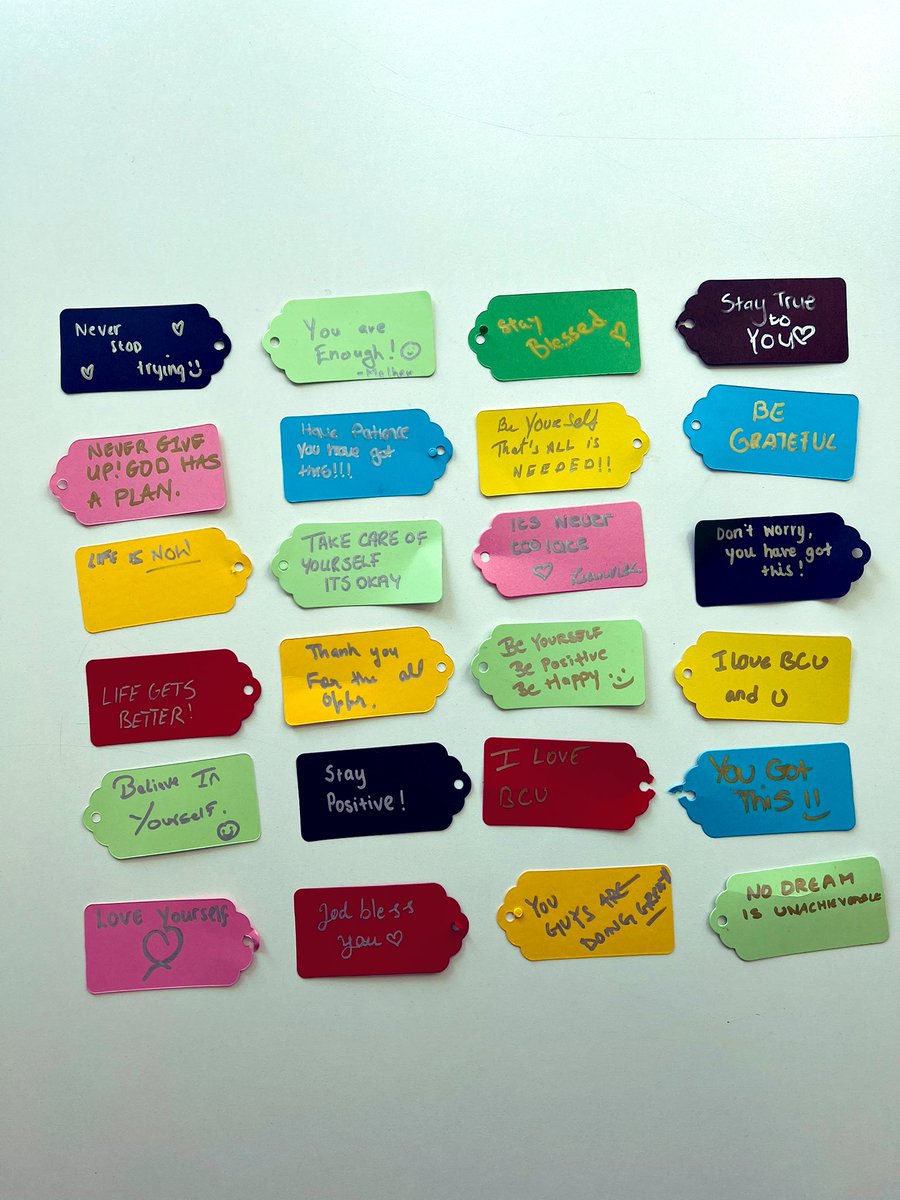 Never
stop
trying
You are
Enough!
- Mathew
Stay
Blessed
Stay True
to
YOU
NEVER GIVE
UP! GOD HAS
A PLAN.
Have Patience
you have got
this!!!
Be Yourself
That's ALL is
NEEDED!!
BE
GRATEFUL
LIFE IS NOW
TAKE CARE OF
YOURSELF
ITS OKAY
It's Never
too late
Don't worry,
you have got
this!
LIFE GETS
BETTER!
Thank you
For the all
Be YOURSELF
Be Positive
Be Happy
I love BCU
and U
Believe In
Yourself.
Stay
Positive!
I LOVE
BCU
YOU GOT
THIS!!
LOVE Yourself
God bless
you
YOU
GUYS ARE
DOING GREAT
NO DREAM
IS UNACHIEVABLE